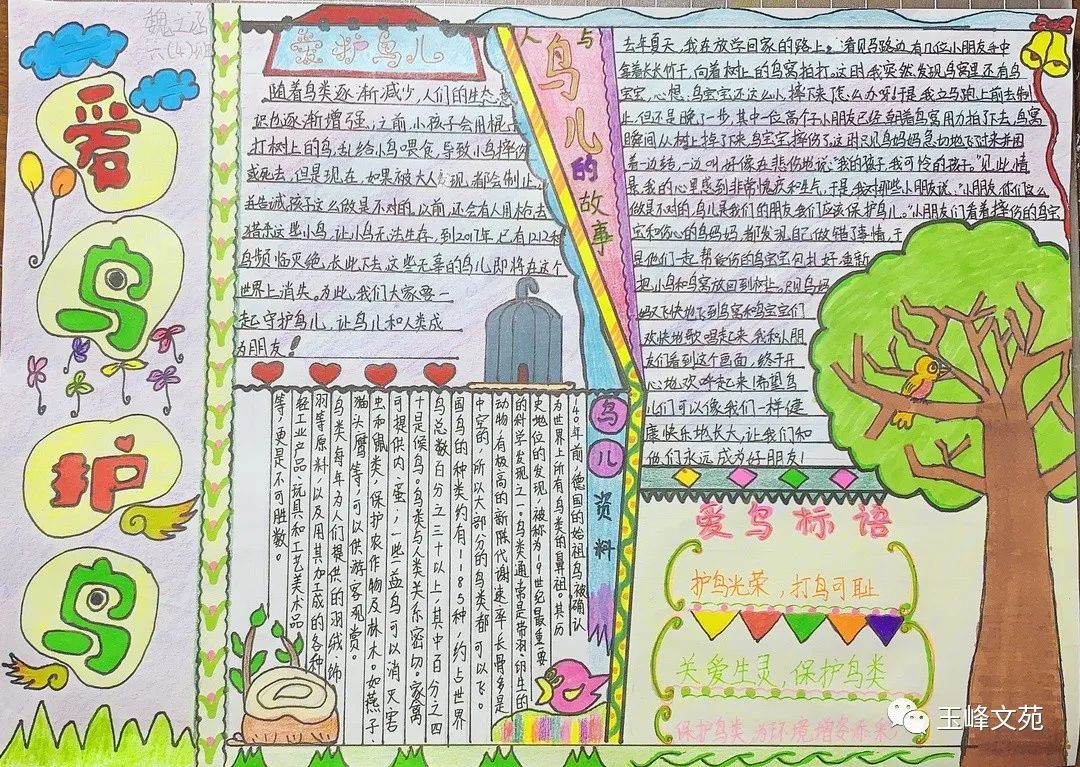 魏之函
六(4)班
爱鸟护鸟
爱护鸟儿
随着鸟类逐渐减少,人们的生态意
识也逐渐增强,之前,小孩子会用棍子
打树上的鸟,乱给小鸟喂食,导致小鸟摔伤
或死去,但是现在,如果被大人发现,都会制止,
并告诫孩子这么做是不对的。以前,还会有人用枪去
猎杀这些小鸟,让小鸟无法生存,到2017年,已有1212种
鸟频临灭绝,长此下去,这些无辜的鸟儿即将在这个
世界上消失。为此,我们大家要一
起守护鸟儿,让鸟儿和人类成
为朋友!
人与鸟儿的故事
去年夏天,我在放学回家的路上。看见马路边有几位小朋友手中
拿着长长竹干,向着树上的鸟窝拍打。这时,我突然发现鸟窝里还有鸟
宝宝,心想:鸟宝宝还这么小,摔下来怎么办呀!于是,我立马跑上前去制
止,但还是晚了一步,其中一位高个子小朋友已经朝着鸟窝用力拍了下去,鸟窝
瞬间从树上掉了下来,鸟宝宝摔伤了,这时只见鸟妈妈急切地飞过来并围
着一边转,一边叫,好像在悲伤地说:“我的孩子,我可怜的孩子。”见此情
景,我的心里感到非常愤庆和生气,于是我对那些小朋友说:“小朋友,你们这么
做是不对的,鸟儿是我们的朋友,我们应该保护鸟儿。”小朋友们看着摔伤的鸟宝
宝和伤心的鸟妈妈,都发现自己做错了事情,于
是他们一起帮受伤的鸟宝宝包扎好,重新
把小鸟和鸟窝放回到树上。只见鸟妈
妈又飞快地飞到鸟窝和鸟宝宝们
欢快地歌唱起来,我和小朋
友们看到这个画面,终于开
心地欢呼起来!希望鸟
儿们可以像我们一样健
康快乐地长大,让我们和
他们永远成为好朋友!
鸟儿资料
140年前,德国的始祖鸟被确认
为世界上所有鸟类的鼻祖。其历
史地位的发现,被称为19世纪最重要
的科学发现之一。鸟类通常是带羽、卵生的
动物,有极高的新陈代谢速率,长骨多是
中空的,所以大部分的鸟类都可以飞。
国鸟的种类约有1185种,约占世界
鸟总数百分之三十以上,其中百分之四
十是候鸟。鸟类与人类关系密切。家禽
可提供肉、蛋,一些益鸟可以消灭害
虫和鼠类,保护农作物及林木。如燕子、
猫头鹰等,可以供游客观赏。
鸟类每年为人们提供的羽绒、绵
羽等原料,以及用其加工成的各种
轻工业产品、玩具和工艺美术品
等,更是不可胜数。
爱鸟标语
护鸟光荣,打鸟可耻
关爱生灵,保护鸟类
保护鸟类,为环境增姿添彩
玉峰文苑